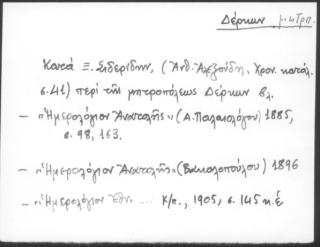 Δέρκων μητρπ.
Κατὰ Ξ. Σιδερίδην, (Ἀνθ. Ἀλεξούδη, Χρον. κατάλ.
σ.41) περὶ τῆς μητροπόλεως Δέρκων βλ.
— "Ἡμερολόγιον Ἀνατολῆς" (Α. Παλαιολόγου) 1885,
σ. 98, 163.
— "Ἡμερολόγιον Ἀνατολῆς" (Βακαλοπούλου) 1896
— "Ἡμερολόγιον Ἐθν. ... Κ/π., 1905, σ. 145 κ.ἑ